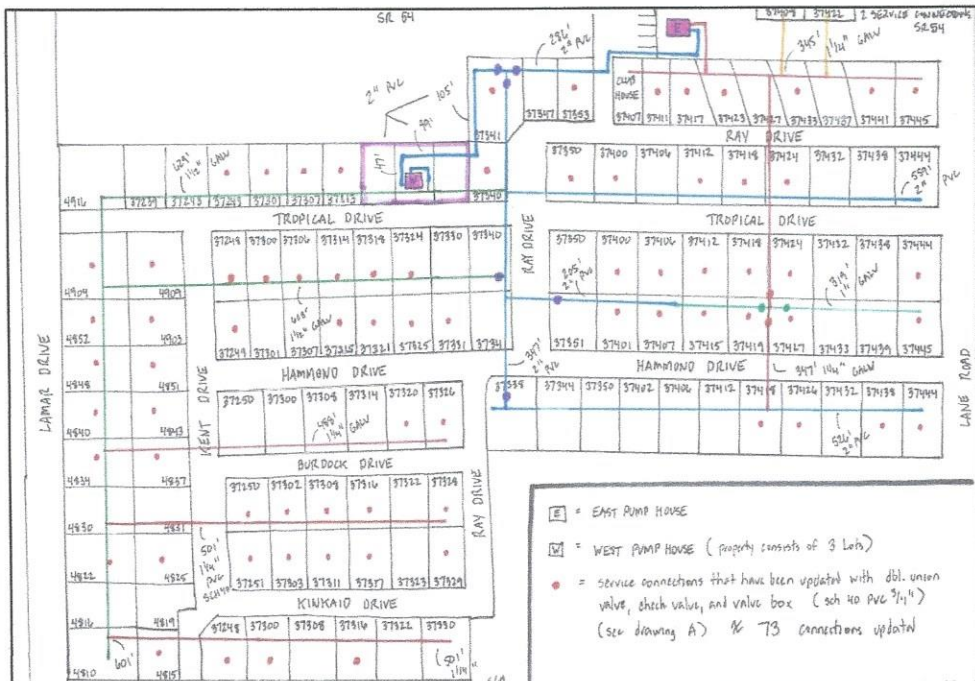 SR 54
37408 37422 2 SERVICE CONNECTIONS
SR 54
E
286'
2" PVC
345' 1 1/4" GALV
2" PVC
105'
CLUB
HOUSE
39'
37341
37347 37353
37407 37411 37417 37423 37427 37433 37437 37441 37445
RAY DRIVE
629'
1 1/2" GALV
47'
W
37350 37400 37406 37412 37418 37424 37432 37438 37444
559'
2" PVC
4916 37239 37243 37243 37301 37307 37313 37340
TROPICAL DRIVE
TROPICAL DRIVE
RAY DRIVE
37248 37300 37306 37314 37318 37324 37330 37340
37350 37400 37406 37412 37418 37424 37432 37438 37444
4909 4909
205'
2" PVC
319'
1 1/4" GALV
1 1/2" GALV
4852 4903
37249 37301 37307 37315 37321 37325 37331 37341
37351 37401 37407 37415 37419 37427 37433 37439 37445
HAMMOND DRIVE
347'
2" PVC
HAMMOND DRIVE
347' 1 1/4" GALV
LAMAR DRIVE
KENT DRIVE
LANE ROAD
4848 4851
37250 37300 37308 37314 37320 37326
37338 37344 37350 37402 37406 37412 37418 37426 37432 37438 37444
488'
1 1/4" GALV
4840 4843
526'
2" PVC
BURDOCK DRIVE
4834 4837
37250 37302 37308 37316 37322 37328
RAY DRIVE
4830 4831
501'
1 1/4"
PVC
SCH 40
4822 4825
37251 37303 37311 37317 37323 37329
KINKAID DRIVE
4816 4819
37248 37300 37308 37316 37322 37330
601'
501'
1 1/4"
4810 4815
E = EAST PUMP HOUSE
W = WEST PUMP HOUSE ( property consists of 3 Lots)
= service connections that have been updated with dbl. union
valve, check valve, and valve box ( sch 40 PVC 3/4")
(see drawing A) 73 connections updated